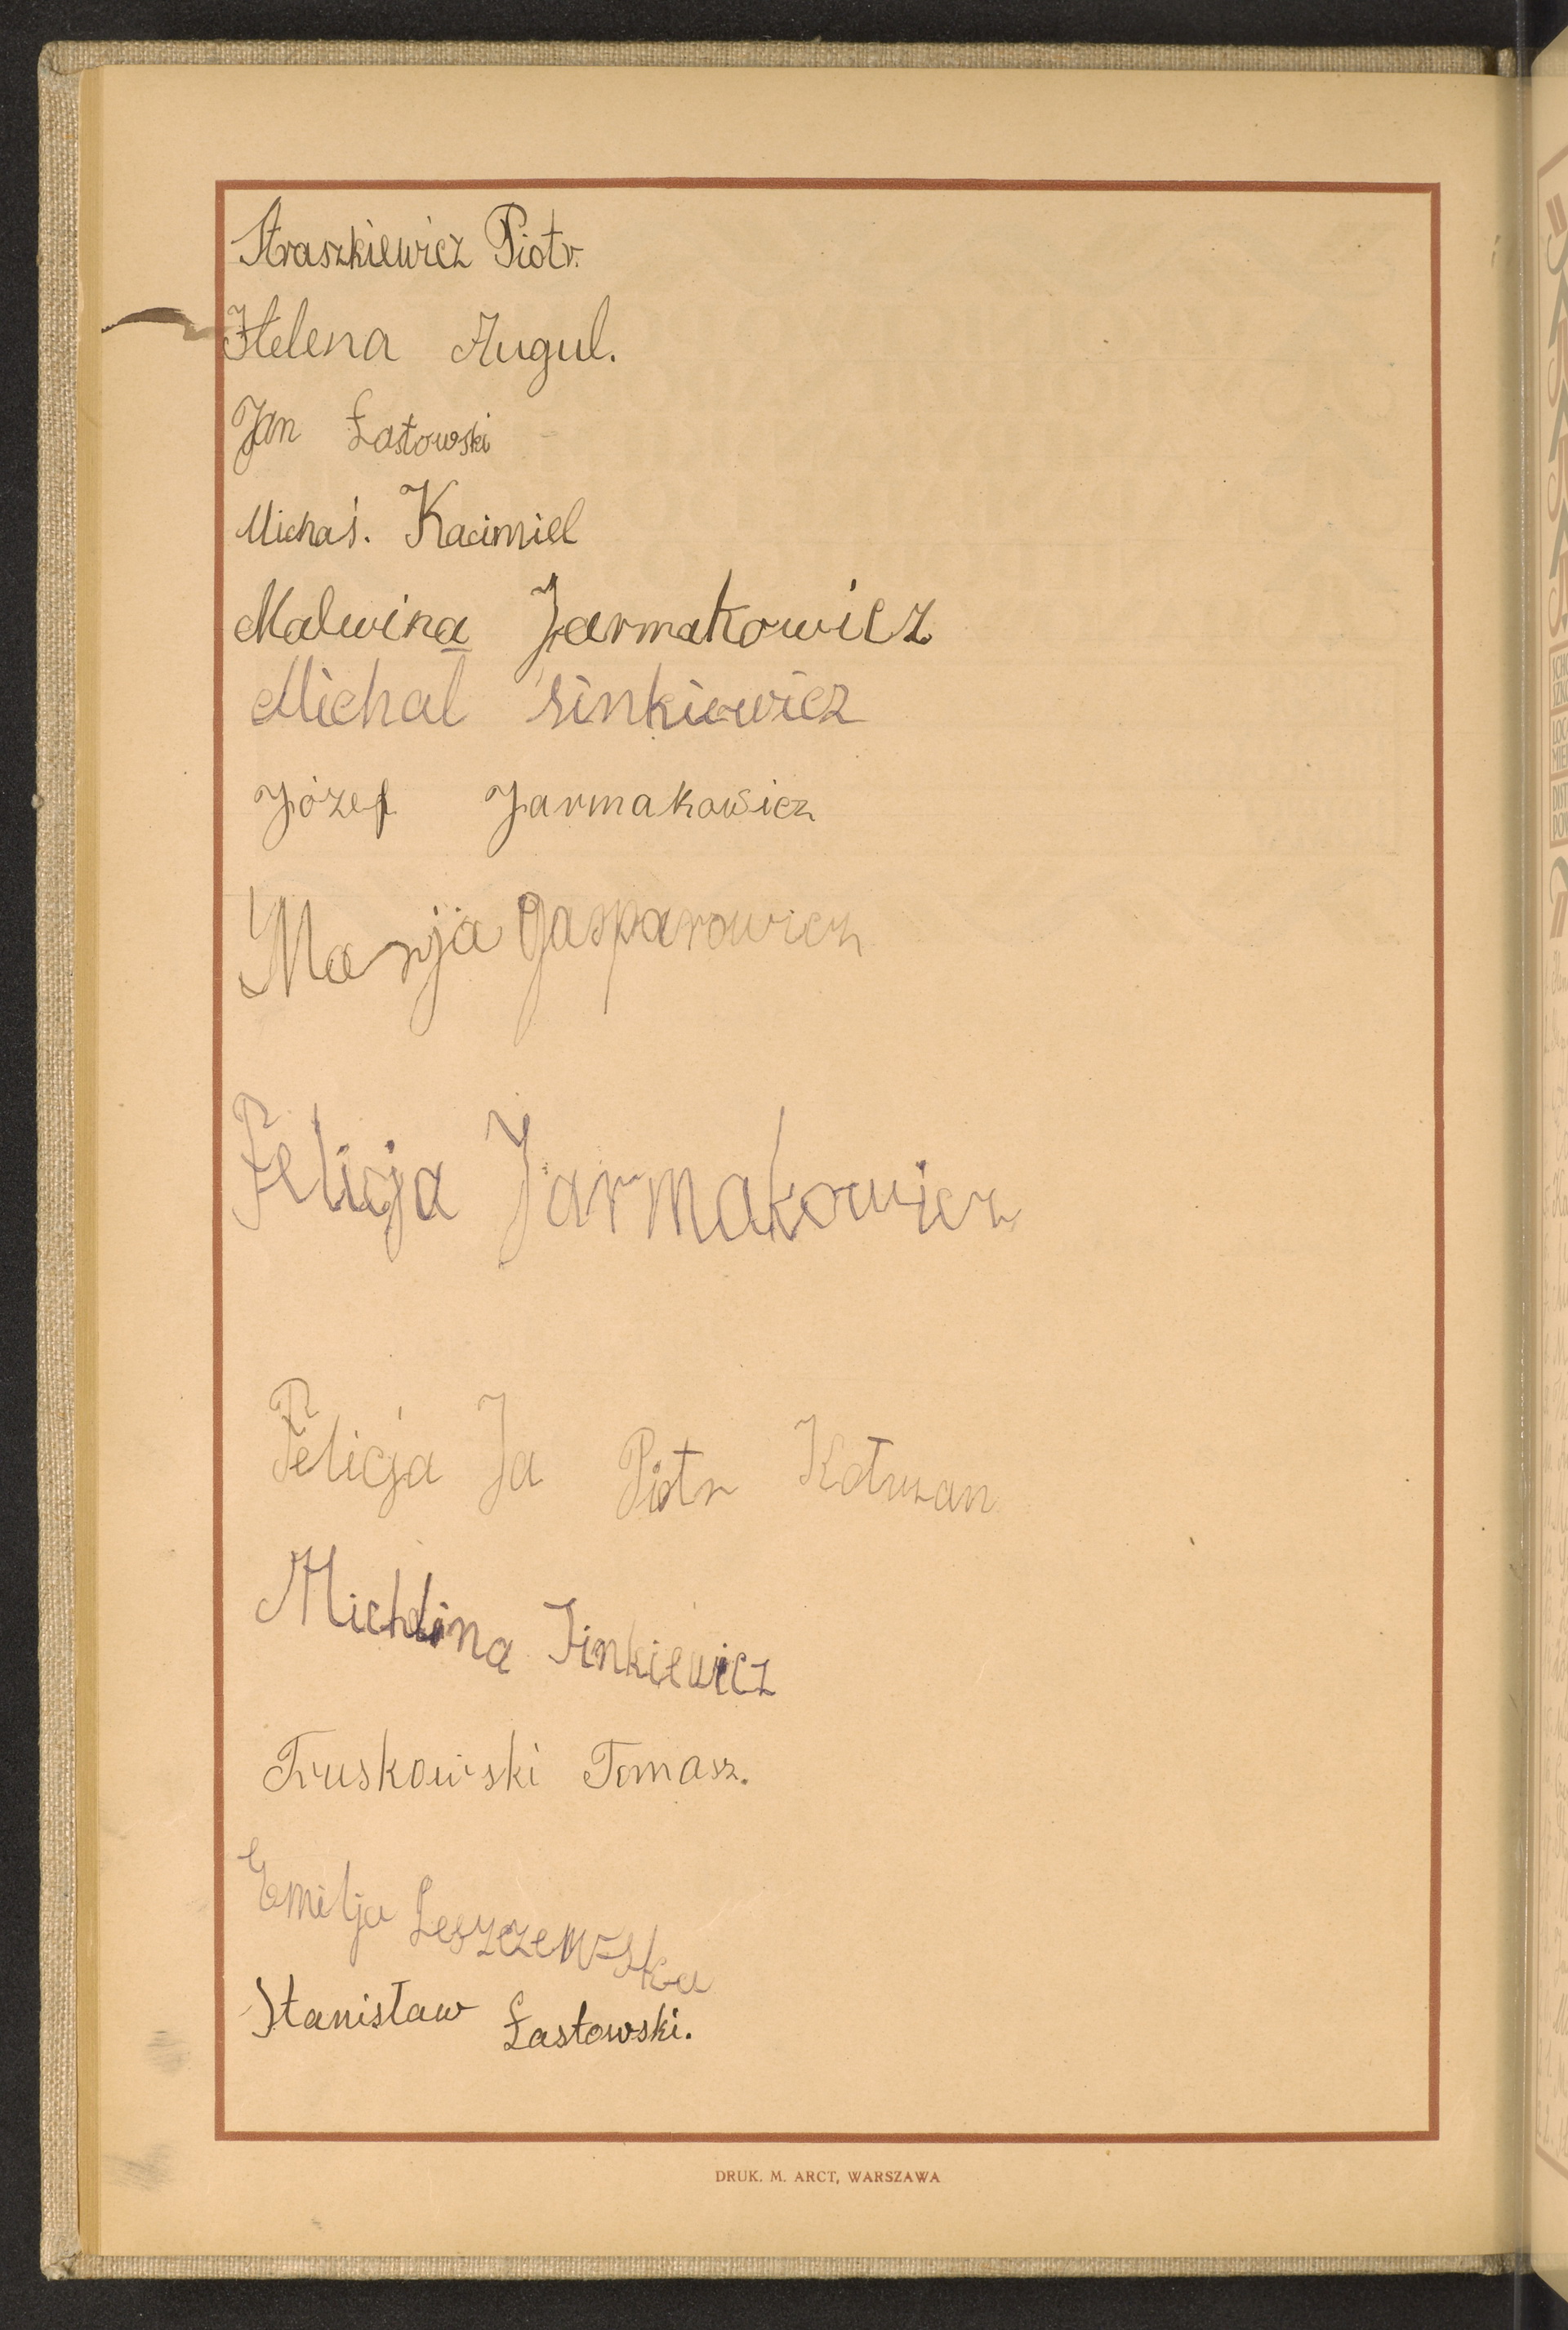 Straszkiewicz Piotr.
Helena Augul.
Jan Łastowski
Michaś. Kacimiel
Malwina Jarmakowicz
Michał sinkiewicz
Józef Jarmakowicz
Marija Gasparowicz
Felicja Jarmakowicz
Felicja Ja Piotr
Michalina Sinkiewicz
Truskowski Tomasz.
Emilja Leszczewska
Stanisław Łastowski.
DRUK. M. ARCT, WARSZAWA